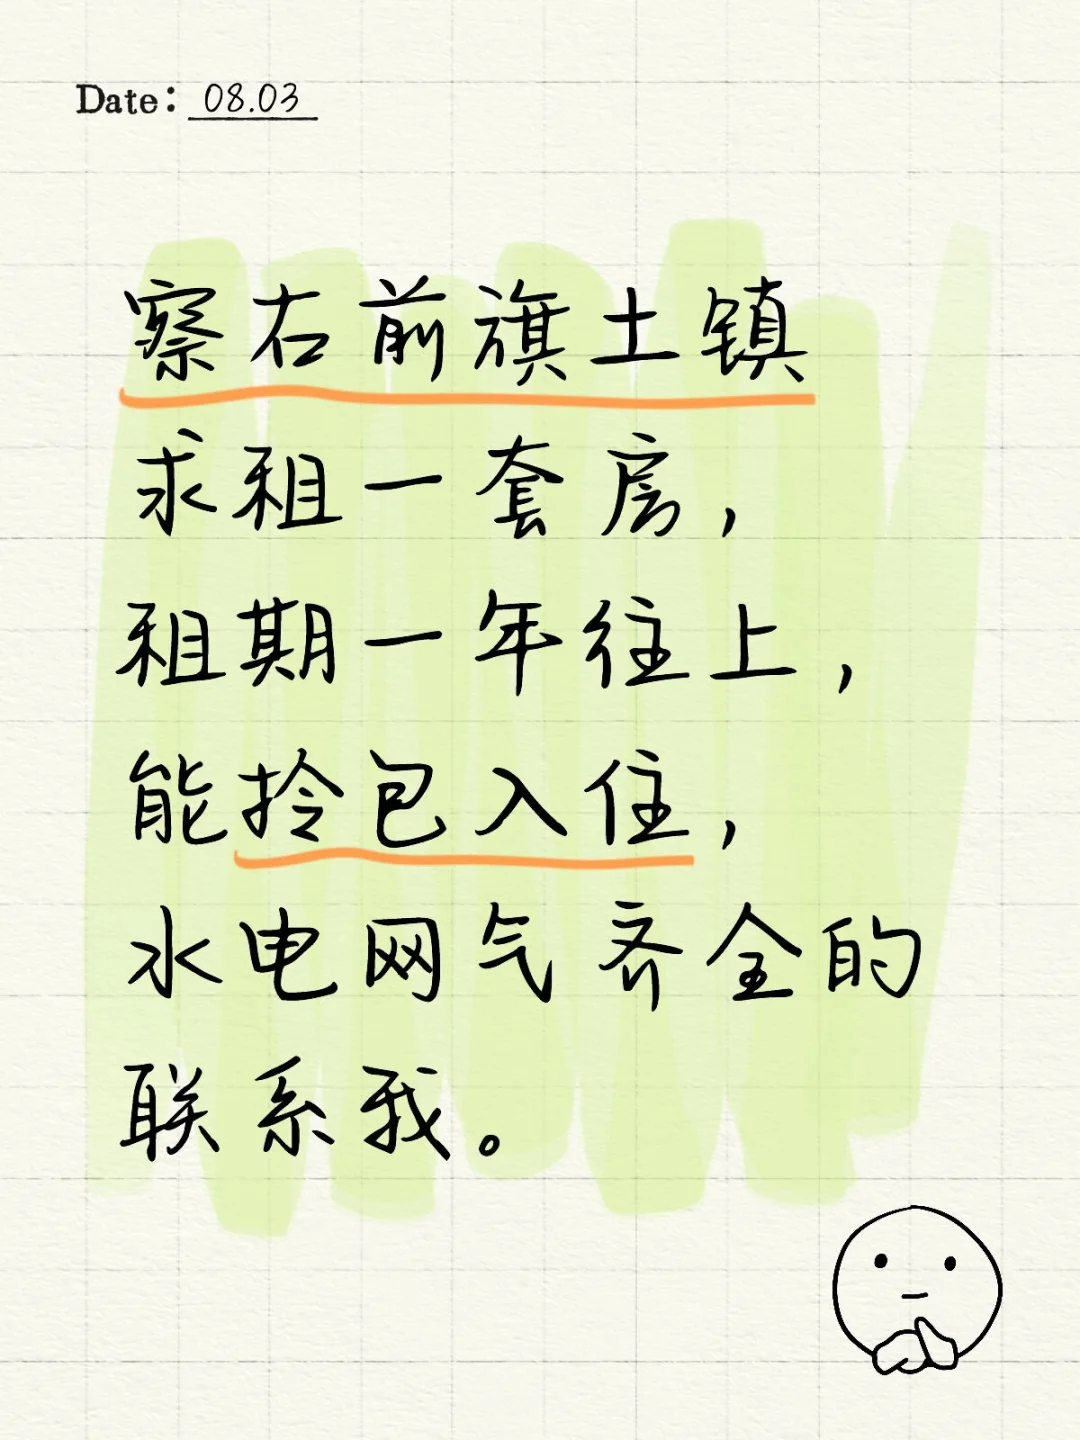 Date: 08.03
察右前旗土镇
求租一套房，
租期一年往上，
能拎包入住，
水电网气齐全的
联系我。